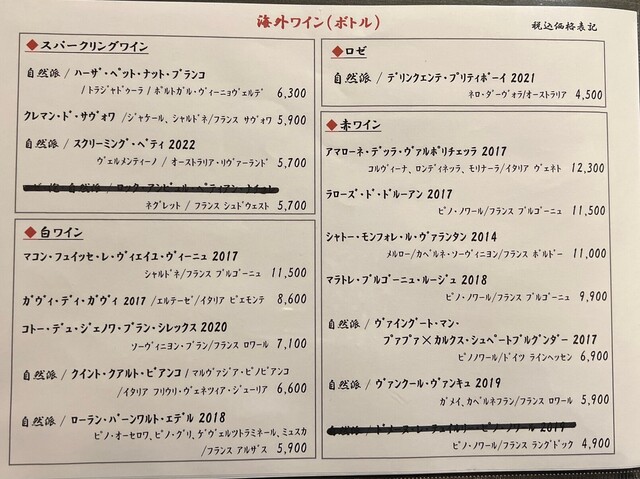 海外ワイン(ボトル)
税込価格表記
◆スパークリングワイン
自然派 / ハーザ・ペット・ナット・ブランコ
/トラジャドゥーラ / ポルトガル・ヴィーニョヴェルデ 6,300
クレマン・ド・サヴォワ /ジャケール、シャルドネ/フランス サヴォワ 5,900
自然派 / スクリーミング・ベティ 2022
ヴェルメンティーノ / オーストラリア・リヴァーランド 5,700
ネグレット / フランス シュドウェスト 5,700
◆白ワイン
マコン・フュイッセ・レ・ヴィエイユ・ヴィーニュ 2017
シャルドネ/フランス ブルゴーニュ 11,500
ガヴィ・ディ・ガヴィ 2017 /コルテーゼ/イタリア ピエモンテ 8,600
コトー・デュ・ジェノワ・ブラン・シレックス 2020
ソーヴィニヨン・ブラン/フランス ロワール 7,100
自然派 / クイント・クアルト・ビアンコ / マルヴァジア・ピノビアンコ
/イタリア フリウリ・ヴェネツィア・ジューリア 6,600
自然派 / ローラン・バーンワルト・エデル 2018
ピノ・オーセロワ、ピノ・グリ、ゲヴェルツトラミネール、ミュスカ
/フランス アルザス 5,900
◆ロゼ
自然派 / デリンクエンテ・プリティボーイ 2021
ネロ・ダーヴォラ/オーストラリア 4,500
◆赤ワイン
アマローネ・デッラ・ヴァルポリチェッラ 2017
コルヴィーナ、ロンディネッラ、モリナーラ/イタリア ヴェネト 12,300
ラローズ・ド・ドルーアン 2017
ピノ・ノワール/フランス ブルゴーニュ 11,500
シャトー・モンフォレ・ル・ヴァランタン 2014
メルロー/カベルネ・ソーヴィニヨン/フランス ボルドー 11,000
マラトレ・ブルゴーニュ・ルージュ 2018
ピノ・ノワール/フランス ブルゴーニュ 9,900
自然派 / ヴァイングート・マン・
ファファ×カルクス・シュペートブルグンダー 2017
ピノノワール/ドイツ ラインヘッセン 6,900
自然派 / ヴァンクール・ヴァンキュ 2019
ガメイ、カベルネフラン/フランス ロワール 5,900
ピノ・ノワール/フランス ラングドック 4,900